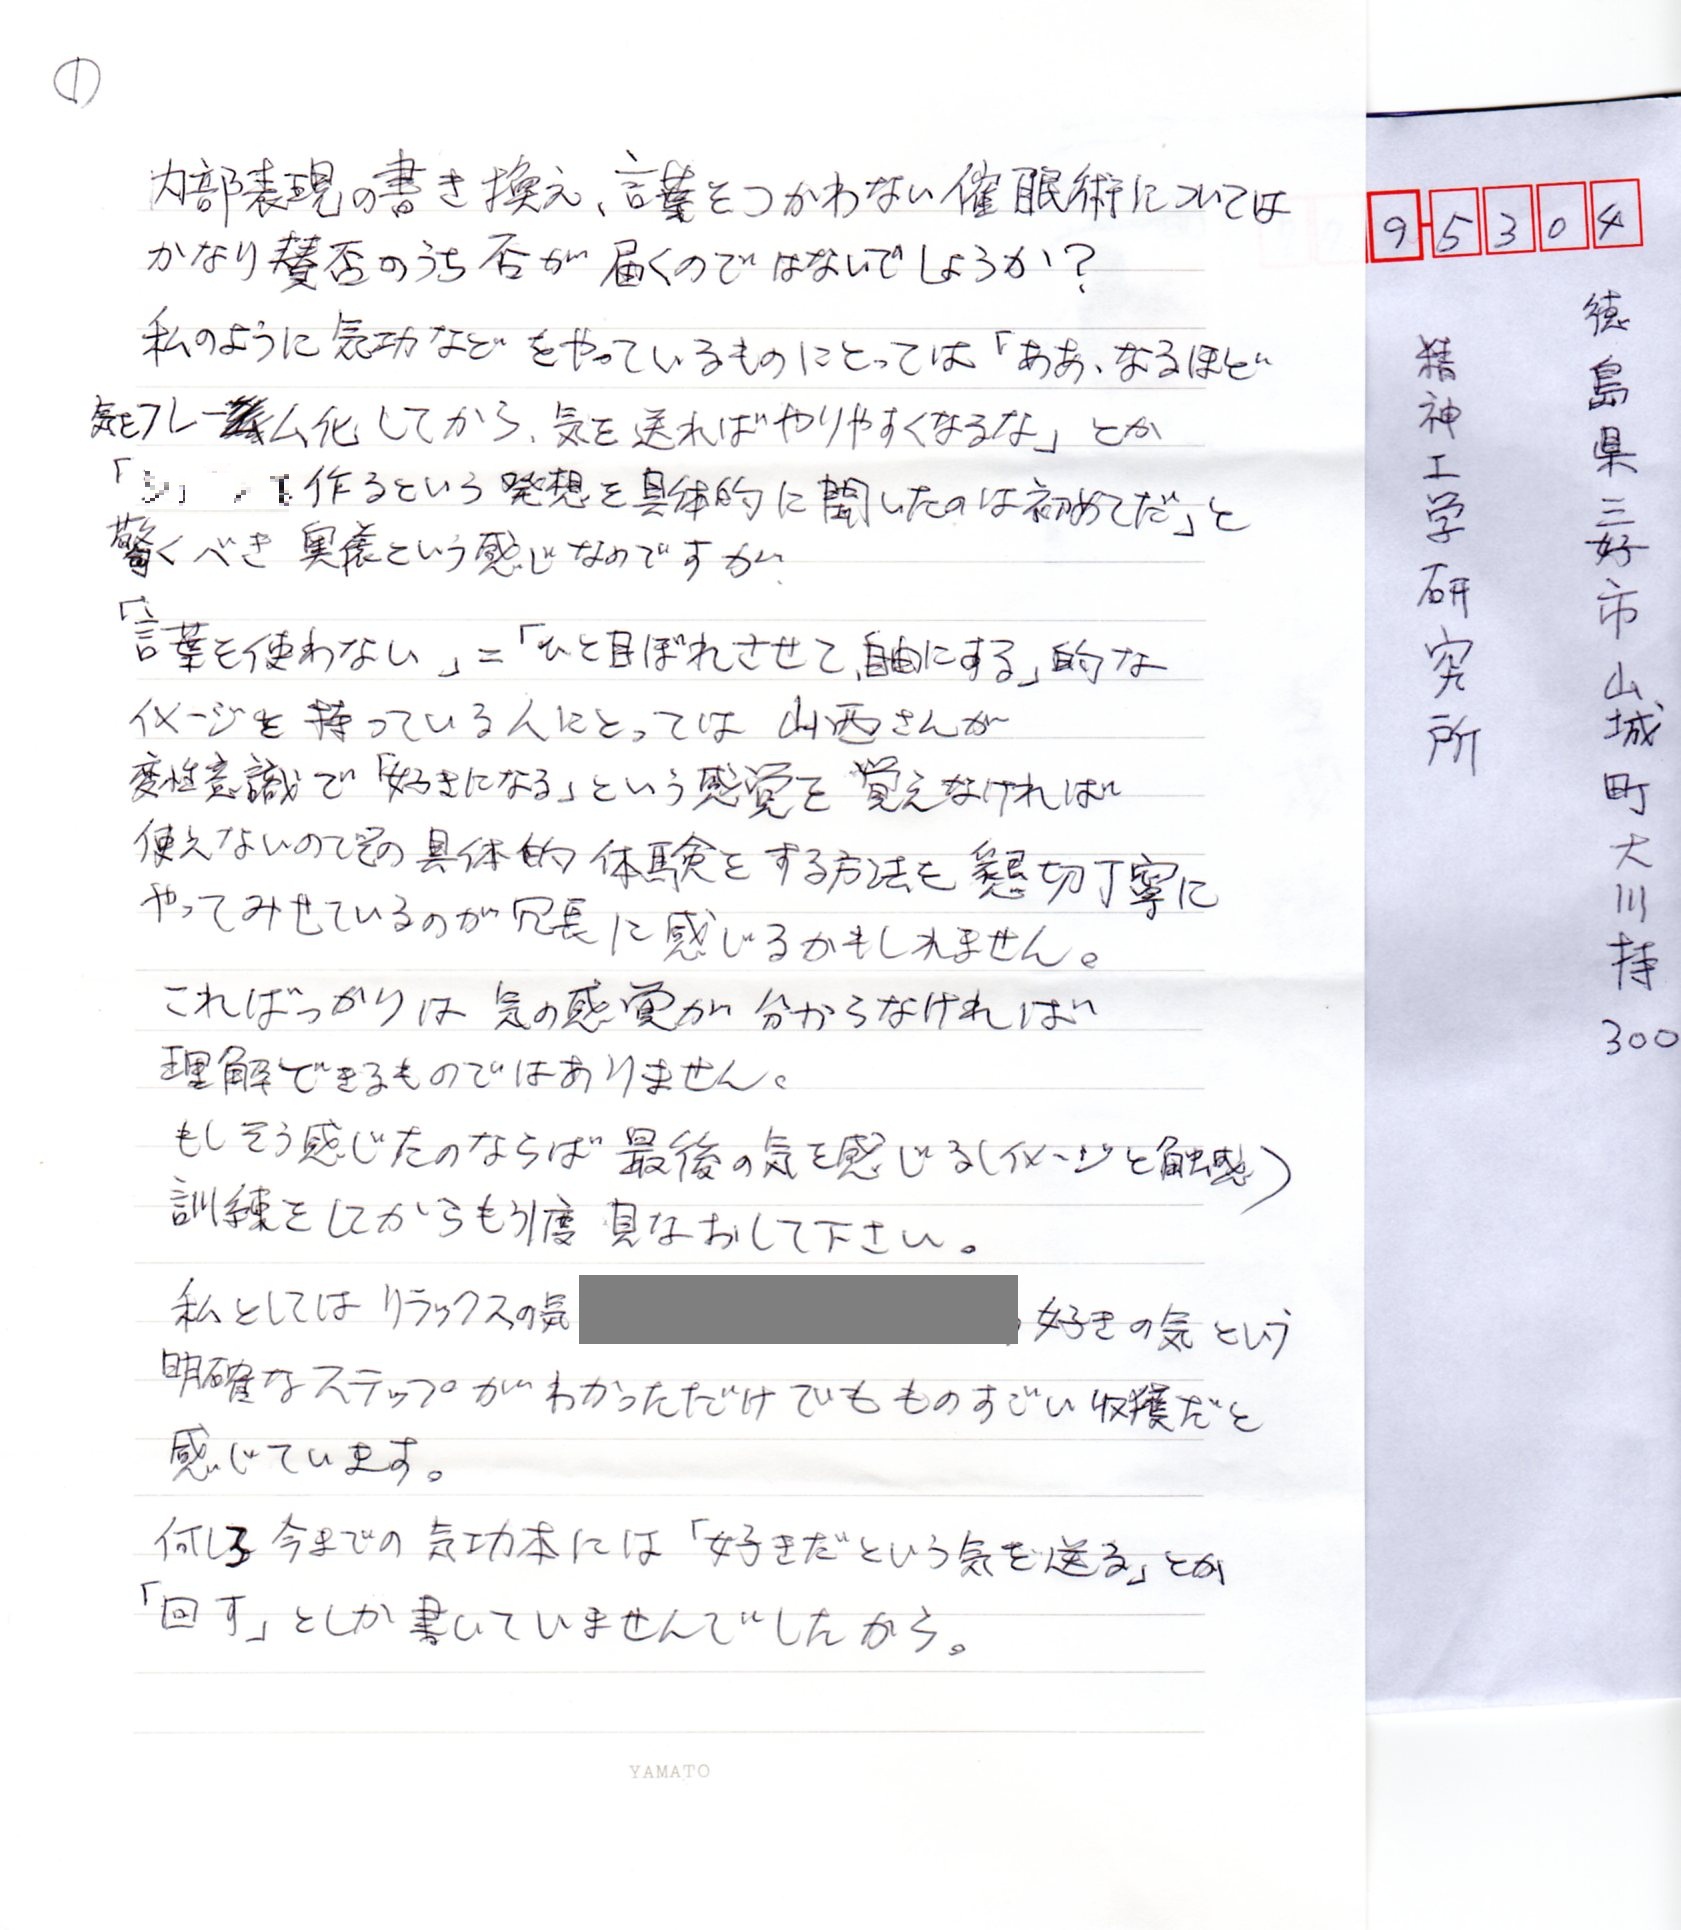 ①
内部表現の書き換え、言葉をつかわない催眠術については
かなり賛否のうち否が届くのではないでしょうか？
私のように気功などをやっているものにとっては「ああ、なるほど
気をフレーム化してから、気を送ればやりやすくなるな」とか
「作るという発想を具体的に聞いたのは初めてだ」と
驚くべき奥儀という感じなのですが
「言葉を使わない」＝「ひと目ぼれさせて、自由にする」的な
イメージを持っている人にとっては山西さんが
変性意識で「好きになる」という感覚を覚えなければ
使えないのでその具体的体験をする方法を懇切丁寧に
やってみせているのが冗長に感じるかもしれません。
こればっかりは気の感覚が分からなければ
理解できるものではありません。
もしそう感じたのならば最後の気を感じる（イメージと触感）
訓練をしてからもう1度見なおして下さい。
私としてはリラックスの気 好きの気という
明確なステップがわかっただけでもものすごい収穫だと
感じています。
何しろ今までの気功本には「好きだという気を送る」とか
「回す」としか書いていませんでしたから。
YAMATO
9-5304
徳島県三好市山城町大川持300
精神工学研究所